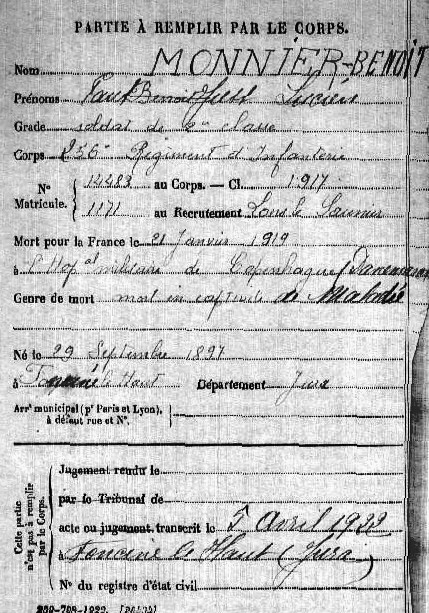 PARTIE À REMPLIR PAR LE CORPS.
Nom MONNIER-BENOIT
Prénoms Paul Benoit Lucien
Grade soldat de 2e classe
Corps 156e Régiment d'Infanterie
N° Matricule. 14483 au Corps. — Cl. 1917
1171 au Recrutement Lons le Saunier
Mort pour la France le 21 Janvier 1919
à l'Hop al militaire de Copenhague (Danemark)
Genre de mort mort en captivité de Maladie
Né le 29 Septembre 1897
à Foncine le Haut Département Jura
Arrt municipal (pr Paris et Lyon),
à défaut rue et N°.
Cette partie n'est pas à remplir par le Corps.
Jugement rendu le
par le Tribunal de
acte ou jugement transcrit le 5 Avril 1922
à Foncine le Haut (Jura)
N° du registre d'état civil